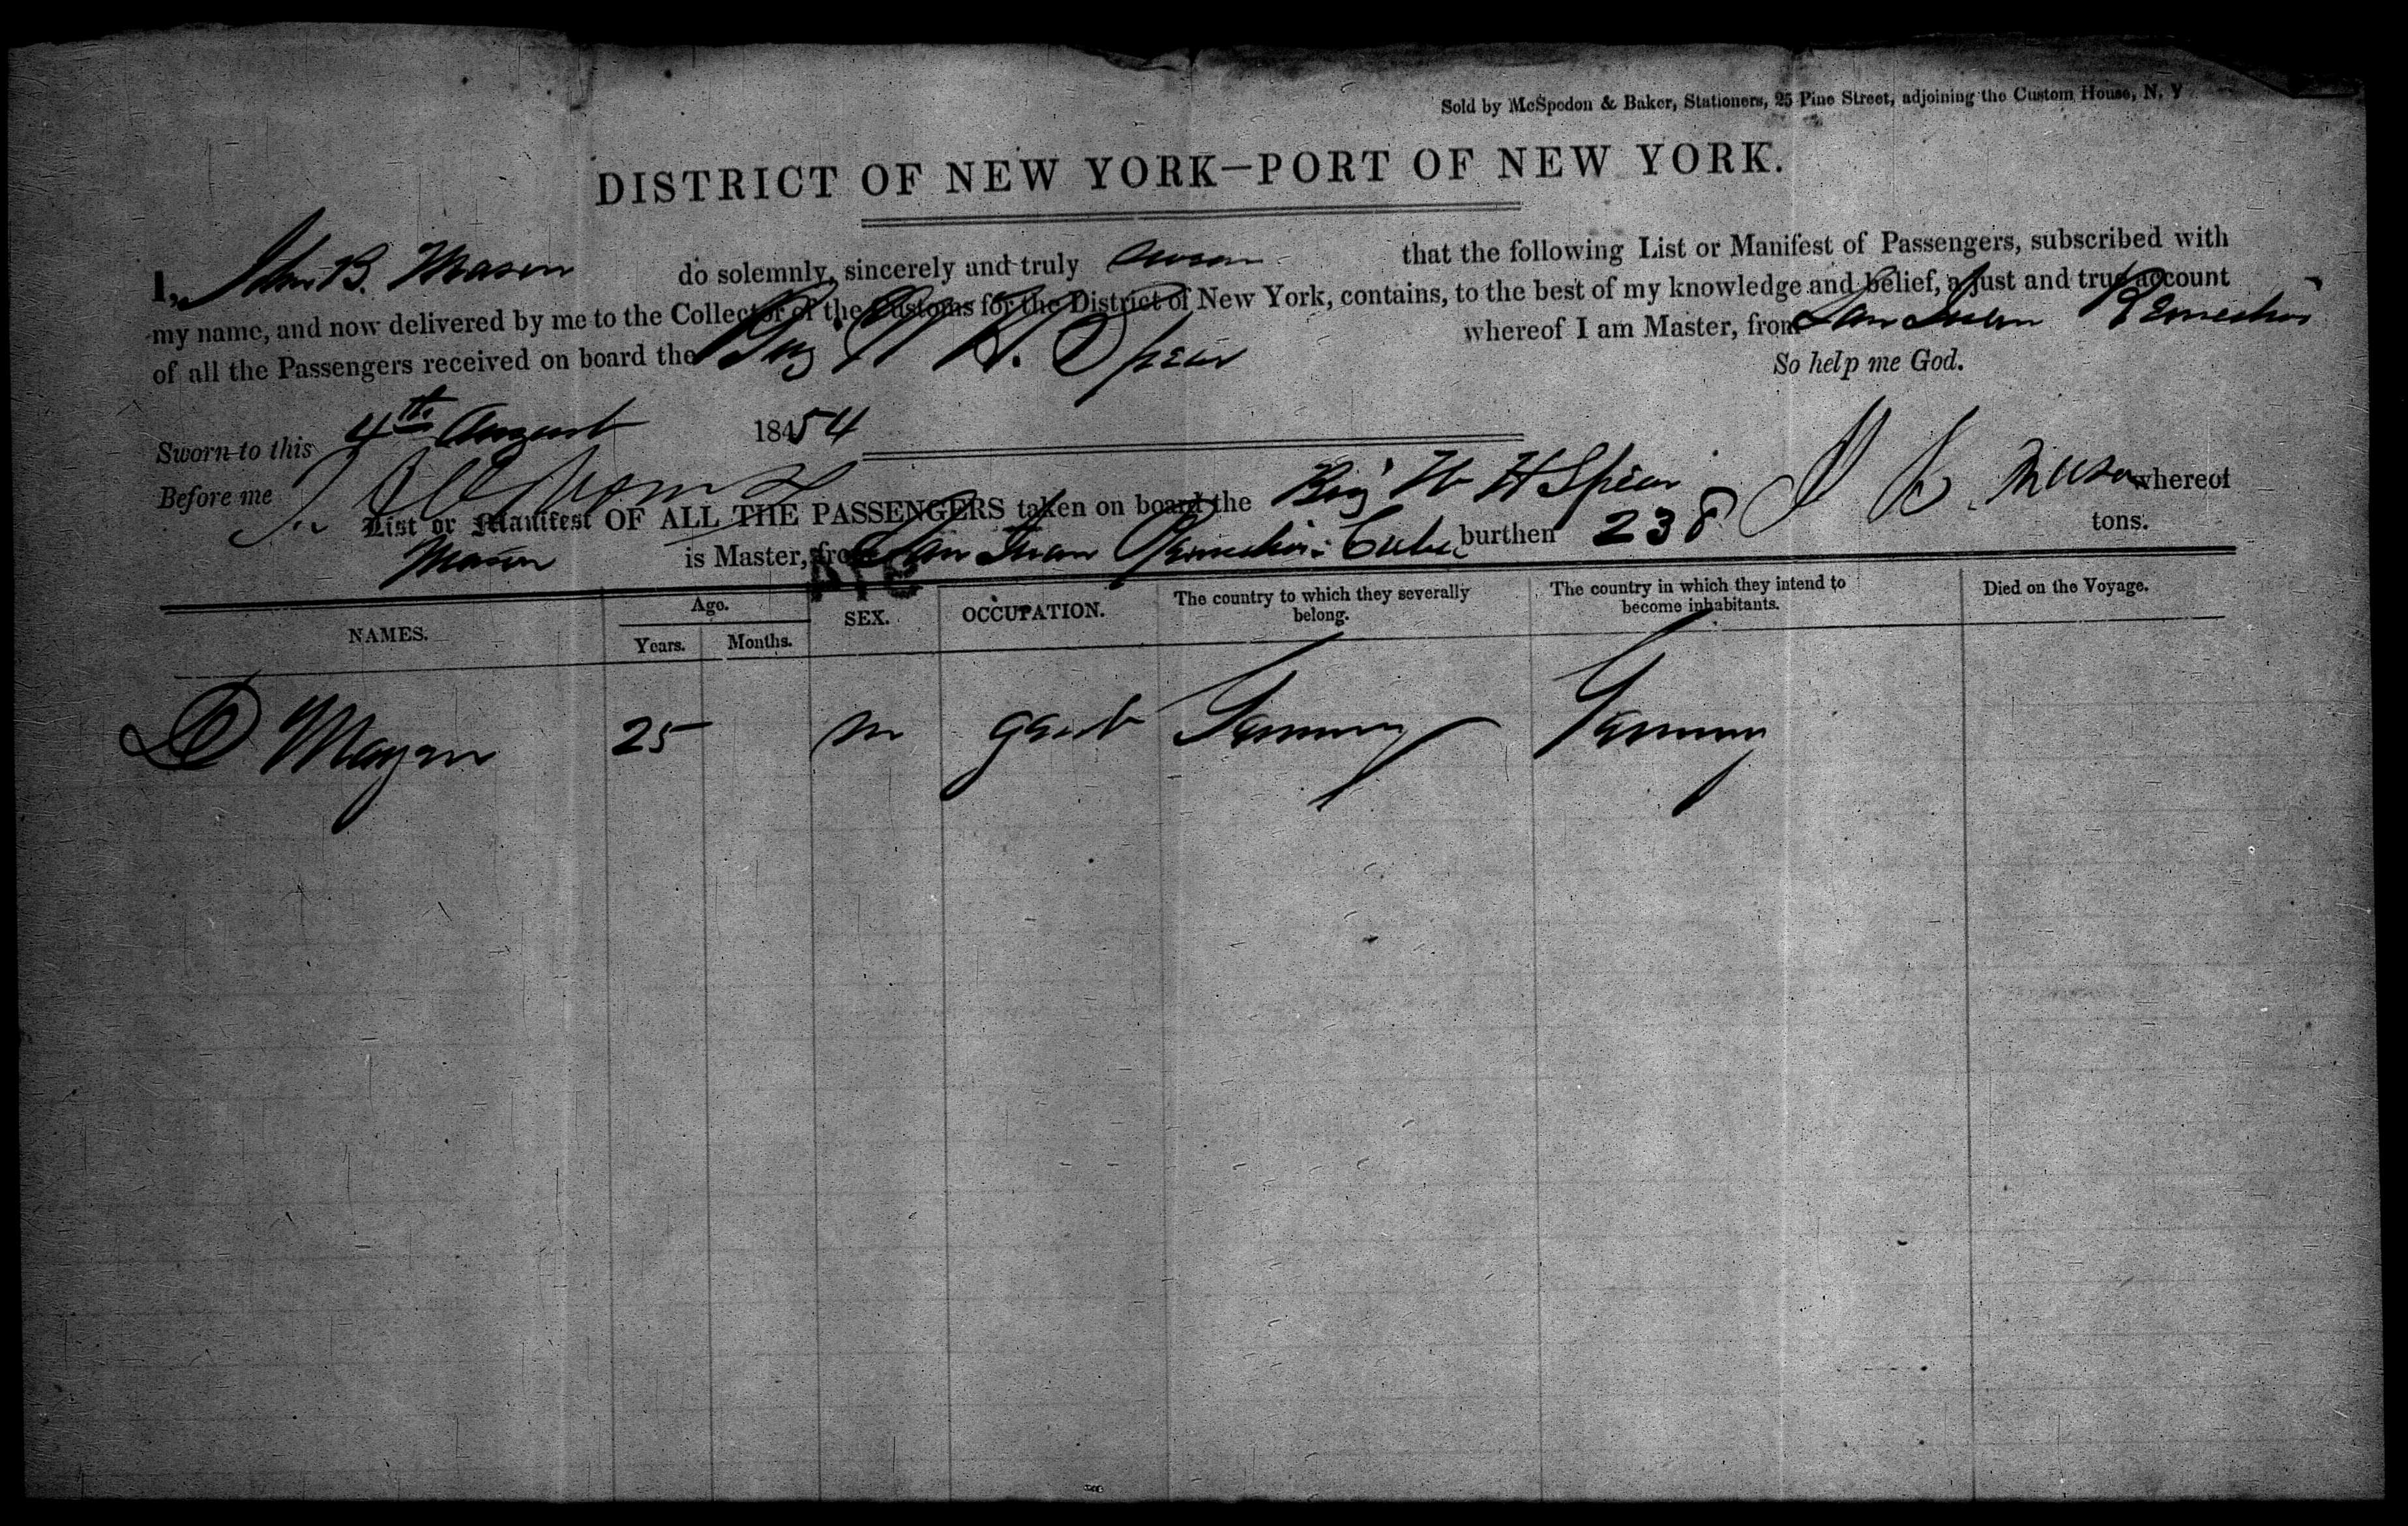 Sold by McSpedon & Baker, Stationers, 25 Pine Street, adjoining the Custom House, N. Y
DISTRICT OF NEW YORK—PORT OF NEW YORK.
I, John B. Mason do solemnly, sincerely and truly swear that the following List or Manifest of Passengers, subscribed with
my name, and now delivered by me to the Collector of the Customs for the District of New York, contains, to the best of my knowledge and belief, a just and true account
of all the Passengers received on board the Brig W H. Spear whereof I am Master, from San Juan Remedios
So help me God.
Sworn to this 4th August 18454
Before me
J B Mason
List or Manifest OF ALL THE PASSENGERS taken on board the Brig W H Spear whereof
Mason is Master, from San Juan Remedios Cuba burthen 238 tons.
NAMES. Age. Years. Months. SEX. OCCUPATION. The country to which they severally belong. The country in which they intend to become inhabitants. Died on the Voyage.
D 25 m Germany Germany